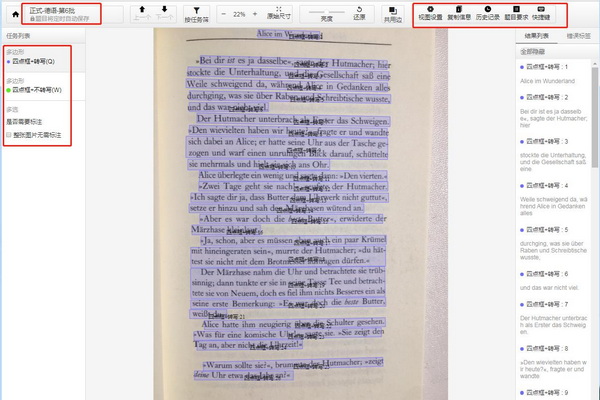 正式-德语-第6批
题目将定时自动保存
上一个
下一个
按任务筛
22%
原始尺寸
亮度
还原
共用边
视图设置
复制信息
历史记录
题目要求
快捷键
任务列表
多边形
四点框+转写(Q)
多边形
四点框+不转写(W)
多选
是否需要标注
整张图片无需标注
Alice im Wunderland
»Bei dir ist es ja dasselbe«, sagte der Hutmacher; hier
stockte die Unterhaltung, und die Gesellschaft saß eine
Weile schweigend da, während Alice in Gedanken alles
durchging, was sie über Raben und Schreibtische wusste,
und das war nicht viel.
Der Hutmacher unterbrach als Erster das Schweigen.
»Den wievielten haben wir heute?«, fragte er und wandte
sich dabei an Alice; er hatte seine Uhr aus der Tasche ge-
zogen und warf einen unruhigen Blick darauf, schüttelte
sie mehrmals und hielt sie sich ans Ohr.
Alice überlegte ein wenig und sagte dann: »Den vierten.«
»Zwei Tage geht sie nach«, seufzte der Hutmacher.
»Ich sagte dir ja, dass Butter dem Uhrwerk nicht guttut«,
setzte er hinzu und sah den Märzhasen wütend an.
»Aber es war doch die beste Butter«, erwiderte der
Märzhase kleinlaut.
»Ja, schon, aber es müssen eben auch ein paar Krümel
mit hineingeraten sein«, murrte der Hutmacher; »du hät-
test sie nicht mit dem Brotmesser auftragen dürfen.«
Der Märzhase nahm die Uhr und betrachtete sie trüb-
sinnig; dann tunkte er sie in seine Tasse Tee und betrach-
tete sie von Neuem, doch es fiel ihm nichts Besseres ein als
seine erste Bemerkung: »Es war doch die beste Butter,
weißt du.«
Alice hatte ihm neugierig über die Schulter gesehen.
»Was für eine komische Uhr!«, sagte sie. »Sie zeigt den
Tag an, aber nicht die Uhrzeit!«
»Warum sollte sie?«, brummte der Hutmacher; »zeigt
deine Uhr etwa das Jahr an?«
结果列表
错误标签
全部隐藏
四点框+转写 : 1
Alice im Wunderland
四点框+转写 : 2
Bei dir ist es ja dasselb
e«, sagte der Hutmacher;
hier
四点框+转写 : 3
stockte die Unterhaltung,
und die Gesellschaft saß
eine
四点框+转写 : 4
Weile schweigend da, wä
hrend Alice in Gedanken
alles
四点框+转写 : 5
durchging, was sie über
Raben und Schreibtische
wusste,
四点框+转写 : 6
und das war nicht viel.
四点框+转写 : 7
Der Hutmacher unterbrac
h als Erster das Schweig
en.
四点框+转写 : 8
»Den wievielten haben w
ir heute?«, fragte er und
wandte
四点框+转写 : 9